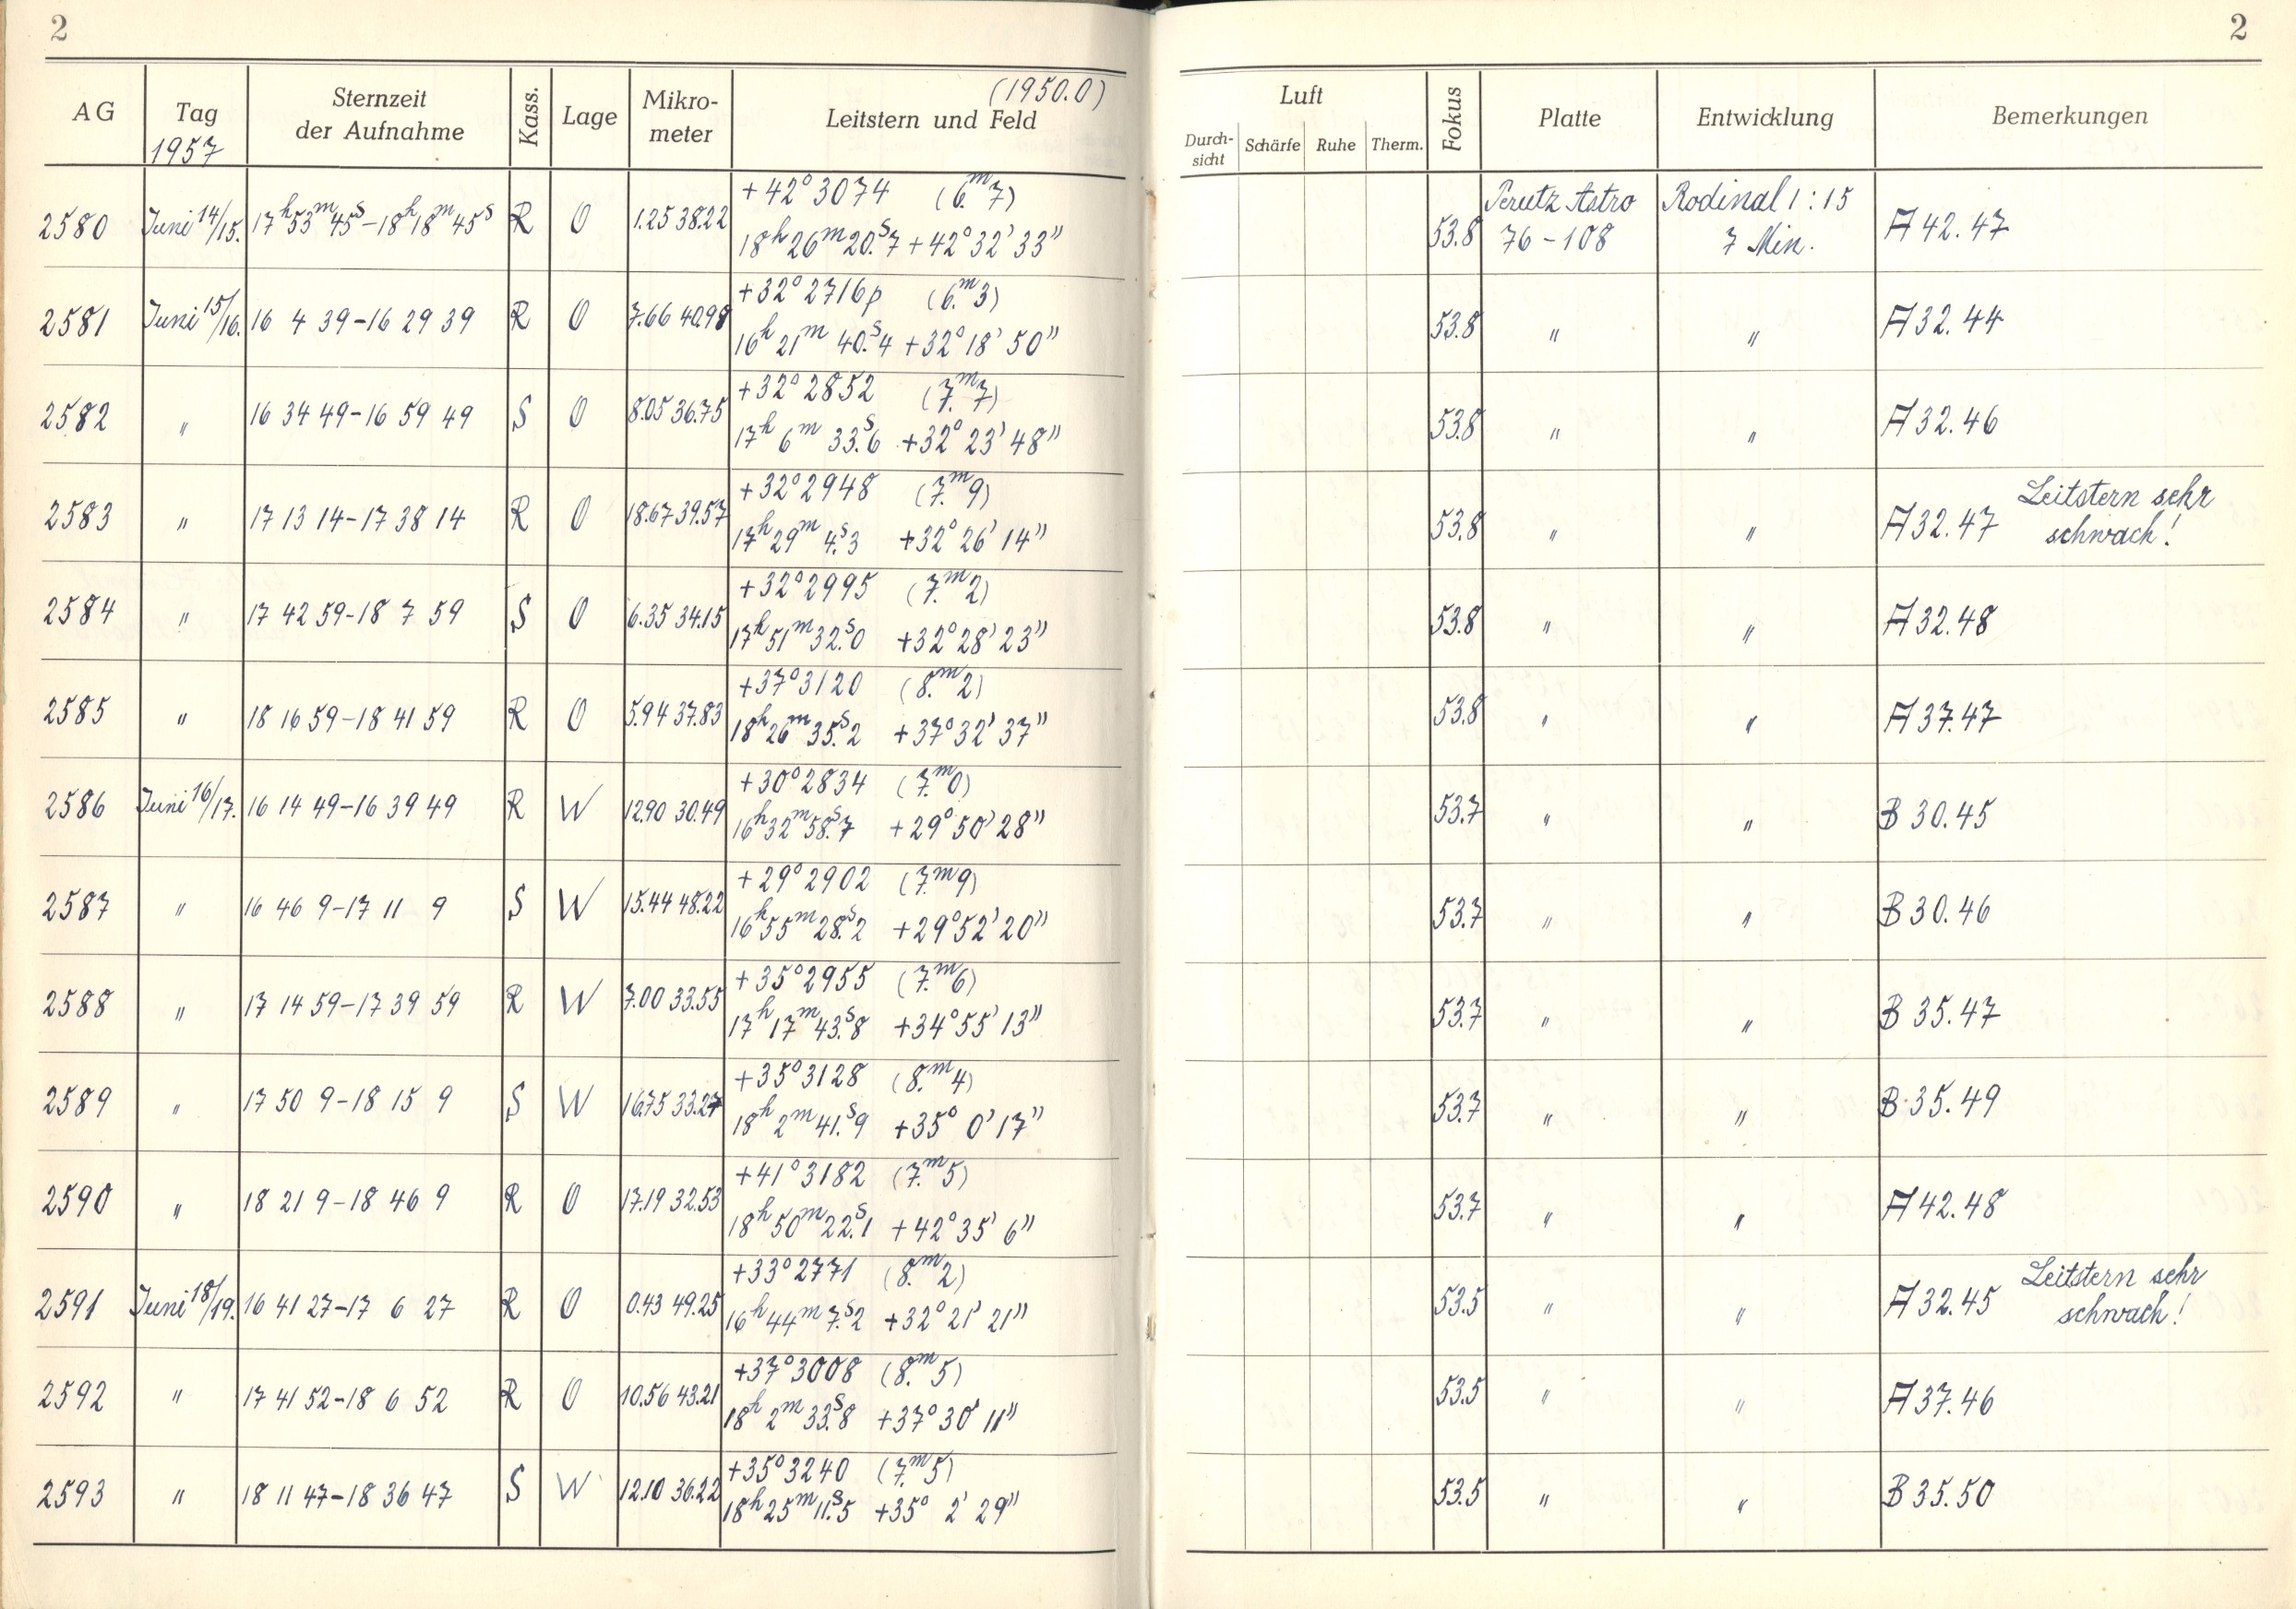 2
2
(1950.0)
AG Tag 1957 Sternzeit der Aufnahme Kass. Lage Mikro-meter Leitstern und Feld Luft Durch-sicht Schärfe Ruhe Therm. Fokus Platte Entwicklung Bemerkungen
+42° 3074 (6.ᵐ7) Perutz Astro Rodinal 1:15
2580 Juni 14/15. 17ʰ53ᵐ45ˢ–18ʰ18ᵐ45ˢ R O 1.25 38.22 18ʰ26ᵐ20.ˢ7 +42°32'33" 53.8 76–108 7 Min. A 42.47
+32° 2716p (6.ᵐ3)
2581 Juni 15/16. 16 4 39–16 29 39 R O 7.66 40.98 16ʰ21ᵐ40.ˢ4 +32°18'50" 53.8 " " A 32.44
+32° 2852 (7.ᵐ7)
2582 " 16 34 49–16 59 49 S O 8.05 36.75 17ʰ6ᵐ33.ˢ6 +32°23'48" 53.8 " " A 32.46
+32° 2948 (7.ᵐ9) Leitstern sehr
2583 " 17 13 14–17 38 14 R O 18.67 39.57 17ʰ29ᵐ4.ˢ3 +32°26'14" 53.8 " " A 32.47 schwach!
+32° 2995 (7.ᵐ2)
2584 " 17 42 59–18 7 59 S O 6.35 34.15 17ʰ51ᵐ32.ˢ0 +32°28'23" 53.8 " " A 32.48
+37° 3120 (8.ᵐ2)
2585 " 18 16 59–18 41 59 R O 5.94 37.83 18ʰ26ᵐ35.ˢ2 +37°32'37" 53.8 " " A 37.47
+30° 2834 (7.ᵐ0)
2586 Juni 16/17. 16 14 49–16 39 49 R W 12.90 30.49 16ʰ32ᵐ58.ˢ7 +29°50'28" 53.7 " " B 30.45
+29° 2902 (7.ᵐ9)
2587 " 16 46 9–17 11 9 S W 15.44 48.22 16ʰ55ᵐ28.ˢ2 +29°52'20" 53.7 " " B 30.46
+35° 2955 (7.ᵐ6)
2588 " 17 14 59–17 39 59 R W 7.00 33.55 17ʰ17ᵐ43.ˢ8 +34°55'13" 53.7 " " B 35.47
+35° 3128 (8.ᵐ4)
2589 " 17 50 9–18 15 9 S W 16.75 33.27 18ʰ2ᵐ41.ˢ9 +35°0'17" 53.7 " " B 35.49
+41° 3182 (7.ᵐ5)
2590 " 18 21 9–18 46 9 R O 17.19 32.53 18ʰ50ᵐ22.ˢ1 +42°35'6" 53.7 " " A 42.48
+33° 2771 (8.ᵐ2) Leitstern sehr
2591 Juni 18/19. 16 41 27–17 6 27 R O 0.43 49.25 16ʰ44ᵐ7.ˢ2 +32°21'21" 53.5 " " A 32.45 schwach!
+37° 3008 (8.ᵐ5)
2592 " 17 41 52–18 6 52 R O 10.56 43.21 18ʰ2ᵐ33.ˢ8 +37°30'11" 53.5 " " A 37.46
+35° 3240 (7.ᵐ5)
2593 " 18 11 47–18 36 47 S W 12.10 36.22 18ʰ25ᵐ11.ˢ5 +35°2'29" 53.5 " " B 35.50